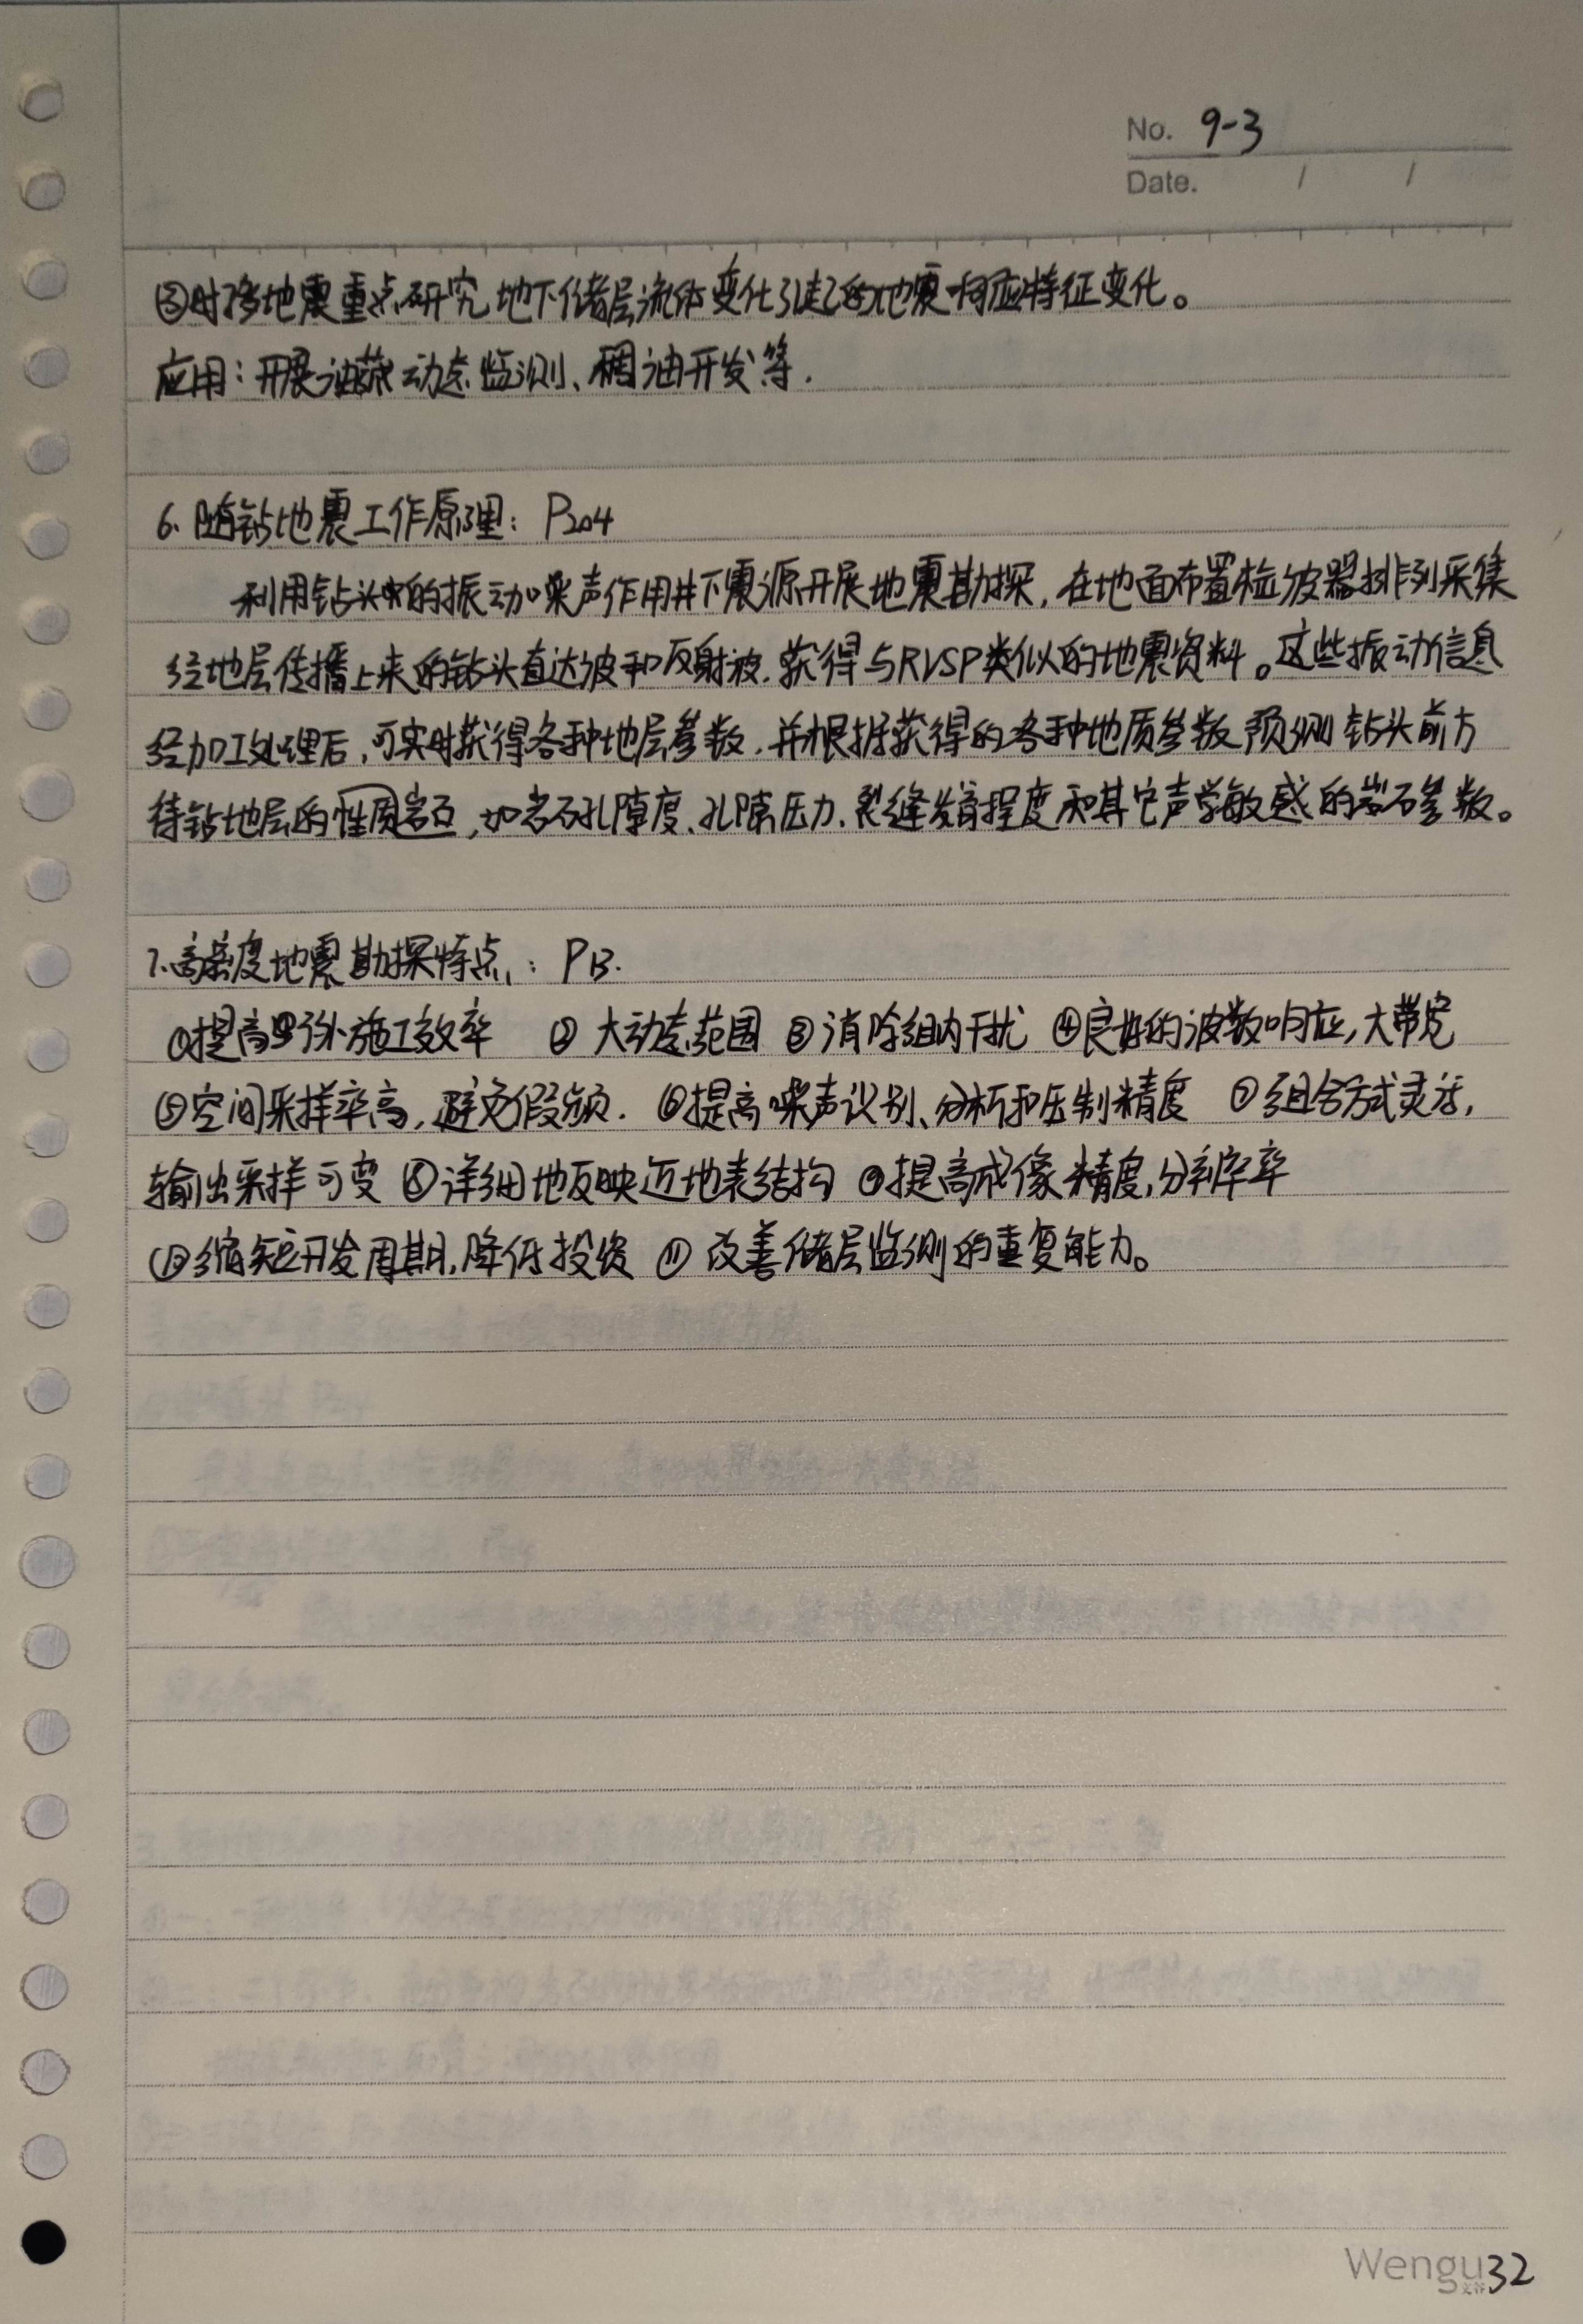 No. 9-3
Date. / /
③时移地震重点研究地下储层流体变化引起的地震响应特征变化。
应用:开展油藏动态监测、稠油开发等.
6. 随钻地震工作原理: P204
利用钻头的振动噪声作用井下震源开展地震勘探,在地面布置检波器排列采集
经地层传播上来的钻头直达波和反射波.获得与RVSP类似的地震资料。这些振动信息
经加工处理后,可实时获得各种地层参数.并根据获得的各种地质参数预测钻头前方
待钻地层的性质岩石,如岩石孔隙度、孔隙压力、裂缝发育程度和其它声学敏感的岩石参数。
7.高密度地震勘探特点: P13.
①提高野外施工效率 ② 大动态范围 ③消除组内干扰 ④良好的波数响应,大带宽
⑤空间采样率高,避免假频. ⑥提高噪声识别、分析和压制精度 ⑦组合方式灵活,
输出采样可变 ⑧详细地反映近地表结构 ⑨提高成像精度,分辨率
⑩缩短开发周期,降低投资 ⑪ 改善储层监测的重复能力。
Wengu 文谷 32